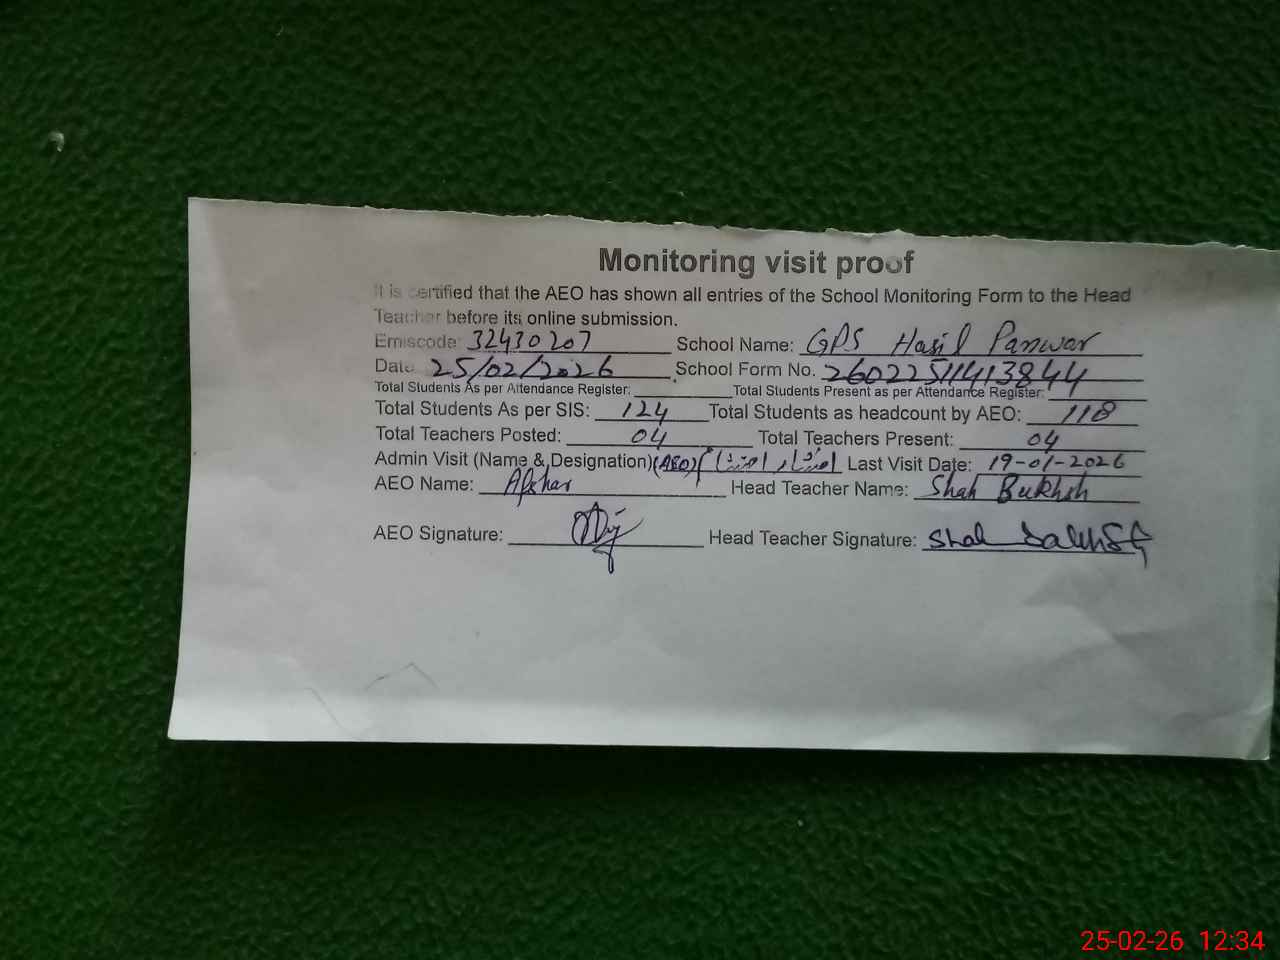 Monitoring visit proof
It is certified that the AEO has shown all entries of the School Monitoring Form to the Head
Teacher before its online submission.
Emiscode: 32430207 School Name: GPS Hasil Panwar
Date 25/02/2026 School Form No. 260225114413844
Total Students As per Attendance Register: Total Students Present as per Attendance Register:
Total Students As per SIS: 124 Total Students as headcount by AEO: 118
Total Teachers Posted: 04 Total Teachers Present: 04
Admin Visit (Name & Designation) (AEO) Last Visit Date: 19-01-2026
AEO Name: Afshar Head Teacher Name: Shah Bukhsh
AEO Signature: Head Teacher Signature: Shah
25-02-26 12:34